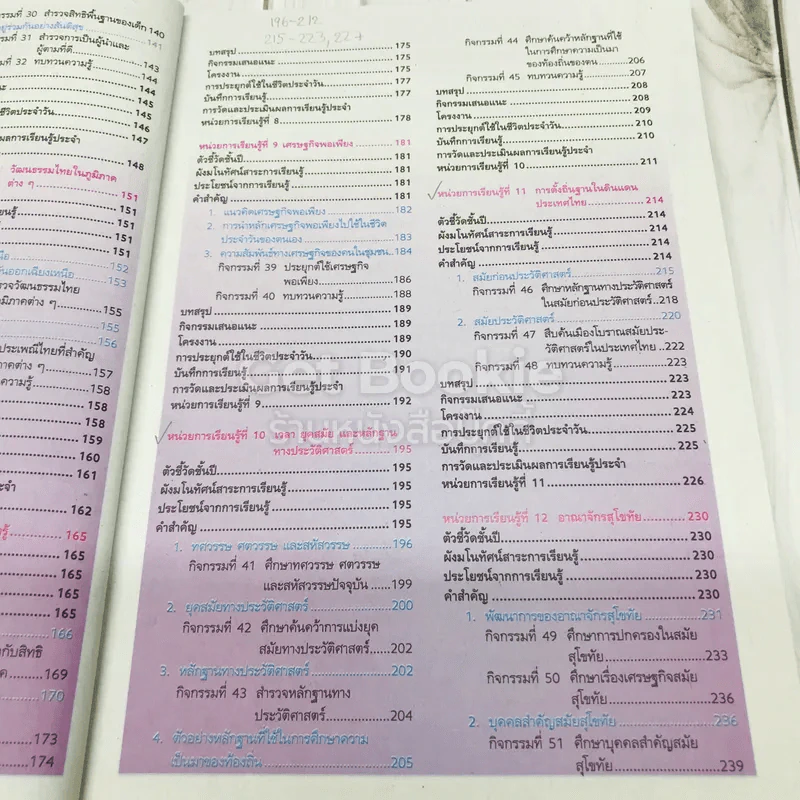 กรรมที่ 30 สำรวจสิทธิพื้นฐานของเด็ก 140
อยู่ร่วมกันอย่างสันติสุข 141
กรรมที่ 31 สำรวจการเป็นผู้นำและ
ผู้ตามที่ดี 143
กรรมที่ 32 ทบทวนความรู้ 144
144
นะ 145
145
ชีวิตประจำวัน 146
147
นผลการเรียนรู้ประจำ
148
วัฒนธรรมไทยในภูมิภาค
ต่าง ๆ 151
151
นรู้ 151
151
151
นือ 152
วันออกเฉียงเหนือ 153
รวจวัฒนธรรมไทย
ภูมิภาคต่าง ๆ 155
155
156
ประเพณีไทยที่สำคัญ
าคต่าง ๆ 157
ความรู้ 158
158
158
159
160
161
ะจำ
162
165
165
165
165
165
166
กับสิทธิ
169
170
173
174
196-212
215-223, 224
บทสรุป 175
กิจกรรมเสนอแนะ 175
โครงงาน 175
การประยุกต์ใช้ในชีวิตประจำวัน 177
บันทึกการเรียนรู้ 177
การวัดและประเมินผลการเรียนรู้ประจำ
หน่วยการเรียนรู้ที่ 8 178
หน่วยการเรียนรู้ที่ 9 เศรษฐกิจพอเพียง 181
ตัวชี้วัดชั้นปี 181
ผังมโนทัศน์สาระการเรียนรู้ 181
ประโยชน์จากการเรียนรู้ 181
คำสำคัญ 181
1. แนวคิดเศรษฐกิจพอเพียง 182
2. การนำหลักเศรษฐกิจพอเพียงไปใช้ในชีวิต
ประจำวันของตนเอง 183
3. ความสัมพันธ์ทางเศรษฐกิจของคนในชุมชน 184
กิจกรรมที่ 39 ประยุกต์ใช้เศรษฐกิจ
พอเพียง 186
กิจกรรมที่ 40 ทบทวนความรู้ 188
บทสรุป 189
กิจกรรมเสนอแนะ 189
โครงงาน 189
การประยุกต์ใช้ในชีวิตประจำวัน 190
บันทึกการเรียนรู้ 191
การวัดและประเมินผลการเรียนรู้ประจำ
หน่วยการเรียนรู้ที่ 9 192
หน่วยการเรียนรู้ที่ 10 เวลา ยุคสมัย และหลักฐาน
ทางประวัติศาสตร์ 195
ตัวชี้วัดชั้นปี 195
ผังมโนทัศน์สาระการเรียนรู้ 195
ประโยชน์จากการเรียนรู้ 195
คำสำคัญ 195
1. ทศวรรษ ศตวรรษ และสหัสวรรษ 196
กิจกรรมที่ 41 ศึกษาทศวรรษ ศตวรรษ
และสหัสวรรษปัจจุบัน 199
2. ยุคสมัยทางประวัติศาสตร์ 200
กิจกรรมที่ 42 ศึกษาค้นคว้าการแบ่งยุค
สมัยทางประวัติศาสตร์ 202
3. หลักฐานทางประวัติศาสตร์ 202
กิจกรรมที่ 43 สำรวจหลักฐานทาง
ประวัติศาสตร์ 204
4. ตัวอย่างหลักฐานที่ใช้ในการศึกษาความ
เป็นมาของท้องถิ่น 205
กิจกรรมที่ 44 ศึกษาค้นคว้าหลักฐานที่ใช้
ในการศึกษาความเป็นมา
ของท้องถิ่นของตน 206
กิจกรรมที่ 45 ทบทวนความรู้ 207
บทสรุป 208
กิจกรรมเสนอแนะ 208
โครงงาน 209
การประยุกต์ใช้ในชีวิตประจำวัน 210
บันทึกการเรียนรู้ 210
การวัดและประเมินผลการเรียนรู้ประจำ
หน่วยการเรียนรู้ที่ 10 211
หน่วยการเรียนรู้ที่ 11 การตั้งถิ่นฐานในดินแดน
ประเทศไทย 214
ตัวชี้วัดชั้นปี 214
ผังมโนทัศน์สาระการเรียนรู้ 214
ประโยชน์จากการเรียนรู้ 214
คำสำคัญ 214
1. สมัยก่อนประวัติศาสตร์ 215
กิจกรรมที่ 46 ศึกษาหลักฐานทางประวัติศาสตร์
ในสมัยก่อนประวัติศาสตร์ 218
2. สมัยประวัติศาสตร์ 220
กิจกรรมที่ 47 สืบค้นเมืองโบราณสมัยประ-
วัติศาสตร์ในประเทศไทย 222
กิจกรรมที่ 48 ทบทวนความรู้ 223
บทสรุป 223
กิจกรรมเสนอแนะ 223
โครงงาน 224
การประยุกต์ใช้ในชีวิตประจำวัน 225
บันทึกการเรียนรู้ 225
การวัดและประเมินผลการเรียนรู้ประจำ
หน่วยการเรียนรู้ที่ 11 226
หน่วยการเรียนรู้ที่ 12 อาณาจักรสุโขทัย 230
ตัวชี้วัดชั้นปี 230
ผังมโนทัศน์สาระการเรียนรู้ 230
ประโยชน์จากการเรียนรู้ 230
คำสำคัญ 230
1. พัฒนาการของอาณาจักรสุโขทัย 231
กิจกรรมที่ 49 ศึกษาการปกครองในสมัย
สุโขทัย 233
กิจกรรมที่ 50 ศึกษาเรื่องเศรษฐกิจสมัย
สุโขทัย 236
2. บุคคลสำคัญสมัยสุโขทัย 236
กิจกรรมที่ 51 ศึกษาบุคคลสำคัญสมัย
สุโขทัย 239